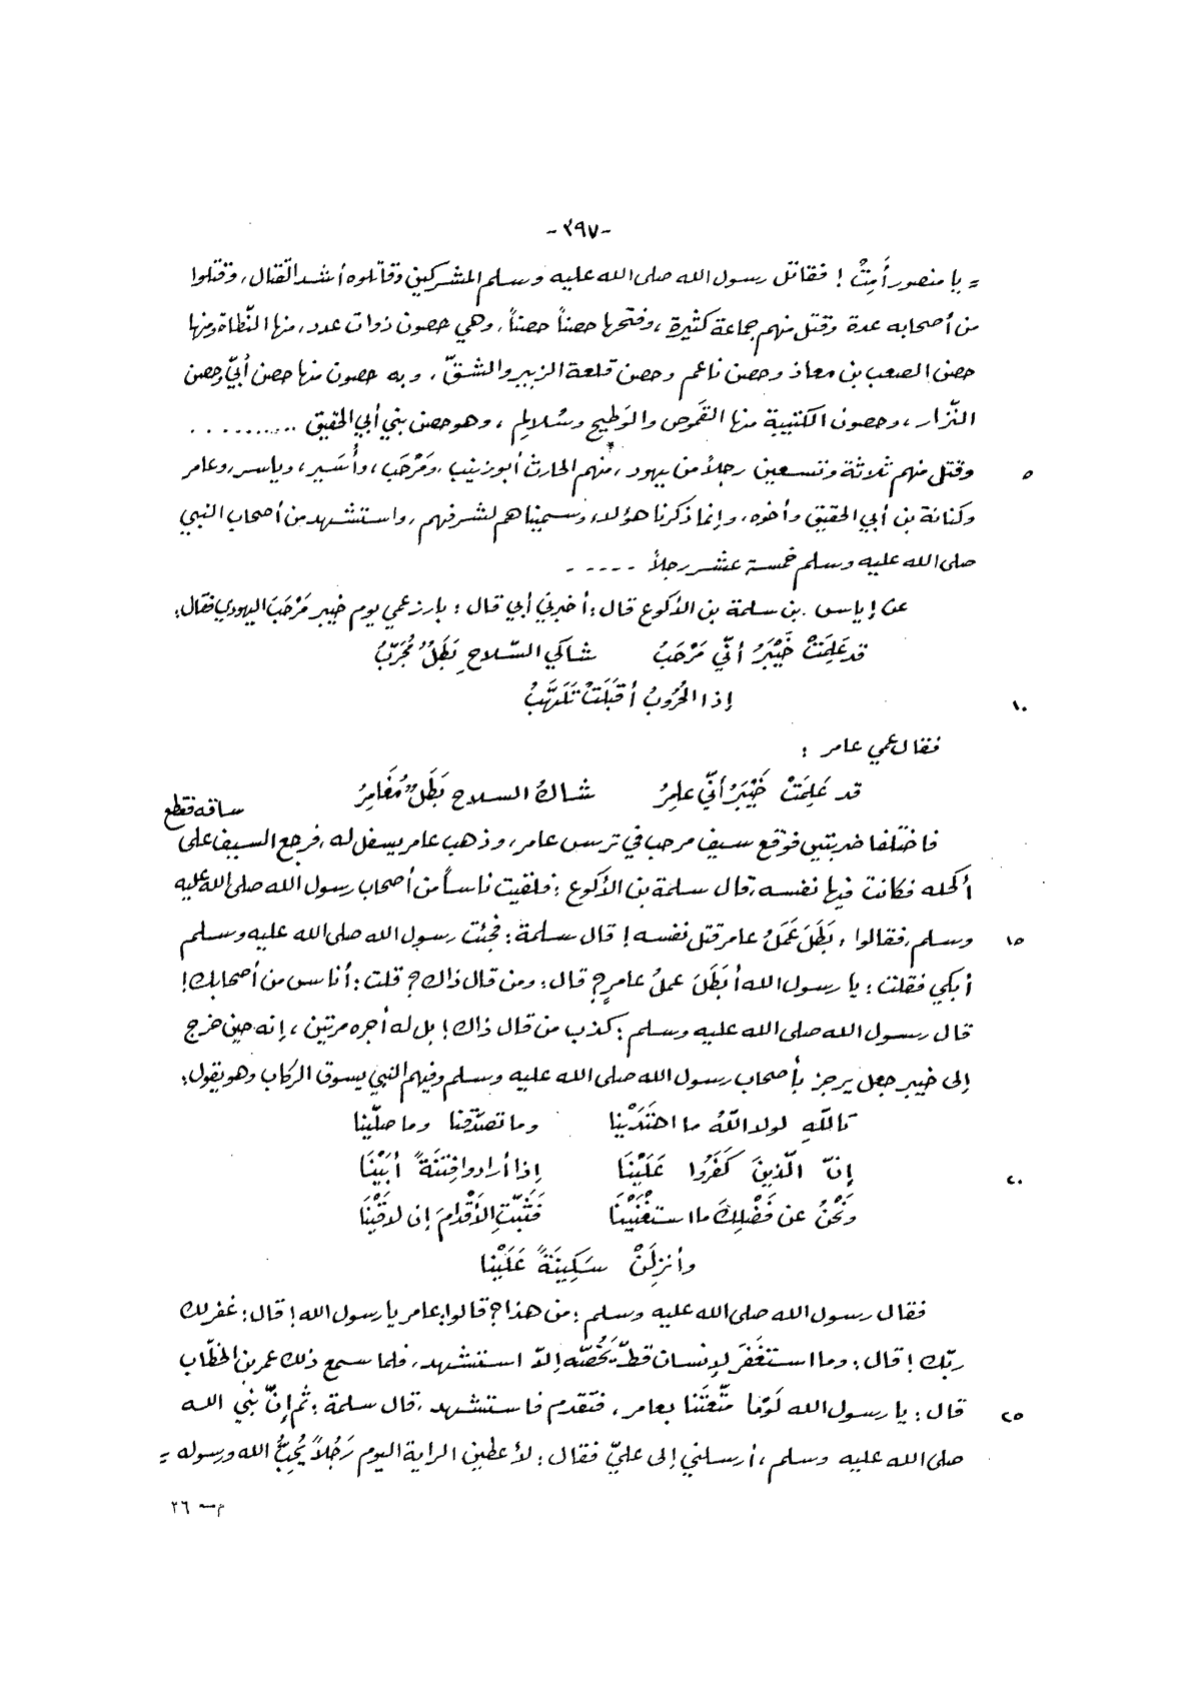 -٣٩٧-
= يا منصور أَمِتْ ! فقاتل رسول الله صلى الله عليه وسلم المشركين وقاتلوه أشد القتال، وقتلوا
من أصحابه عدة وقتل منهم جماعة كثيرة ، وفتحها حصناً حصناً ، وهي حصون ذوات عدد، منها النّطاة ومنها
حصن الصعب بن معاذ وحصن ناعم وحصن قلعة الزبير والشقّ ، وبه حصون منها حصن أُبيّ وحصن
النّزار ، وحصون الكتيبة منها القَموص والوَطيح وسُلالِم ، وهو حصن بني أبي الحقيق ..........
٥ وقتل منهم ثلاثة وتسعين رجلاً من يهود ، منهم الحارث أبو زينب ، ومَرْحَب ، وأُسَير ، وياسر، وعامر
وكنانة بن أبي الحقيق وأخوه، وإنما ذكرنا هؤلاء وسميناهم لشرفهم ، واستشهد من أصحاب النبي
صلى الله عليه وسلم خمسة عشر رجلاً - - - - -
عن إياس بن سلمة بن الأكوع قال : أخبرني أبي قال : بارز عمي يوم خيبر مَرْحَبَ اليهودي فقال :
قد عَلِمَتْ خَيْبَرُ أنّي مَرْحَبُ شاكي السّلاحِ بَطَلٌ مُجَرّبُ
١٠ إذا الحُرُوبُ أقْبَلَتْ تَلَهَّبُ
فقال عمي عامر :
قد عَلِمَتْ خَيْبَرُ أنّي عامِرُ شاكُ السلاح بَطَلٌ مُغَامِرُ
فاختلفا ضربتين فوقع سيف مرحب في ترس عامر، وذهب عامر يسفل له ، فرجع السيف على ساقه فقطع
أكحله فكانت فيها نفسه، قال سلمة بن الأكوع : فلقيت ناساً من أصحاب رسول الله صلى الله عليه
١٥ وسلم، فقالوا : بَطَلَ عَمَلُ عامر قتل نفسه ! قال سلمة : فجئت رسول الله صلى الله عليه وسلم
أبكي فقلت : يا رسول الله أبَطَلَ عملُ عامرٍ ؟ قال : ومن قال ذاك ؟ قلت : أناس من أصحابك !
قال رسول الله صلى الله عليه وسلم : كذب من قال ذاك ! بل له أجره مرتين ، إنه حين خرج
إلى خيبر جعل يرجز بأصحاب رسول الله صلى الله عليه وسلم وفيهم النبي يسوق الركاب وهو يقول :
تاللهِ لولا اللهُ ما اهْتَدَيْنا وما تصدّقنا وما صلّينا
٢٠ إنّ الّذينَ كَفَرُوا عَلَيْنَا إذا أرادوا فِتنَةً أبَيْنَا
ونَحْنُ عن فَضْلِكَ ما استغْنَيْنَا فَثَبّتِ الأقْدامَ إن لاقَيْنَا
وأنزِلَنْ سَكِينَةً عَلَيْنا
فقال رسول الله صلى الله عليه وسلم : من هذا ؟ قالوا: عامر يا رسول الله ! قال : غفر لك
ربّك ! قال : وما استغفَرَ لإنسان قطّ يَخُصّه إلاّ استشهد، فلما سمع ذلك عمر بن الخطّاب
٢٥ قال : يا رسول الله لَوْما مَتّعتَنا بعامر ، فتقدم فاستشهد ، قال سلمة : ثم إنّ نبيّ الله
صلى الله عليه وسلم ، أرسلني إلى عليّ فقال : لأعطين الراية اليوم رَجُلاً يُحِبُّ الله ورسوله =
م — ٢٦